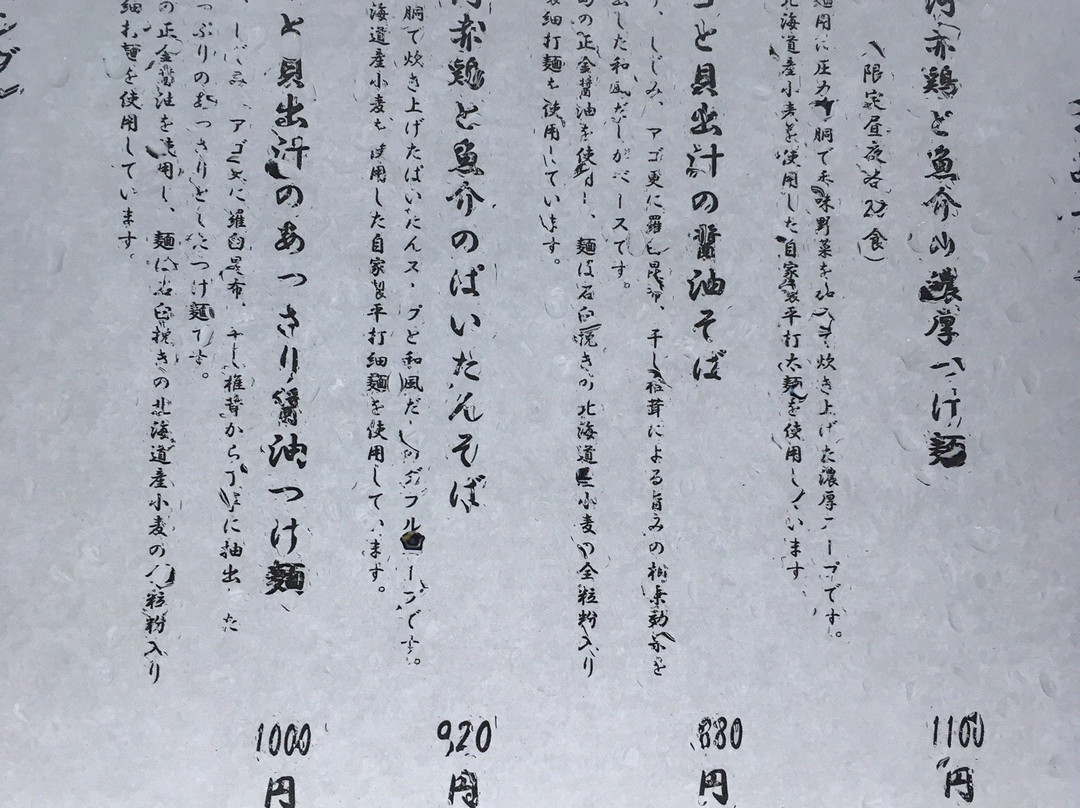 赤鶏と魚介の濃厚つけ麺
(限定昼夜各20食)
麺用に圧力寸胴で
味野菜を
炊き上げた濃厚スープです。
北海道産小麦を使用した自家製平打太麺を使用しています
1100円
と貝出汁の醤油そば
、しじみ、アゴ更に羅臼昆布、干し椎茸による旨みの相乗効果を
出した和風だしがベースです。
の正金醤油を使用し、麺は石臼挽きの北海道産小麦の全粒粉入り
細打麺を使用しています。
880円
赤鶏と魚介のぱいたんそば
胴で炊き上げたぱいたんスープと和風だしのダブルスープです。
海道産小麦を使用した自家製平打細麺を使用しています。
920円
と貝出汁のあっさり醤油つけ麺
、しじみ、アゴ更に羅臼昆布、干し椎茸から丁寧に抽出した
っぷりのあっさりとしたつけ麺です。
の正金醤油を使用し、麺は石臼挽きの北海道産小麦の全粒粉入り
細打麺を使用しています。
1000円